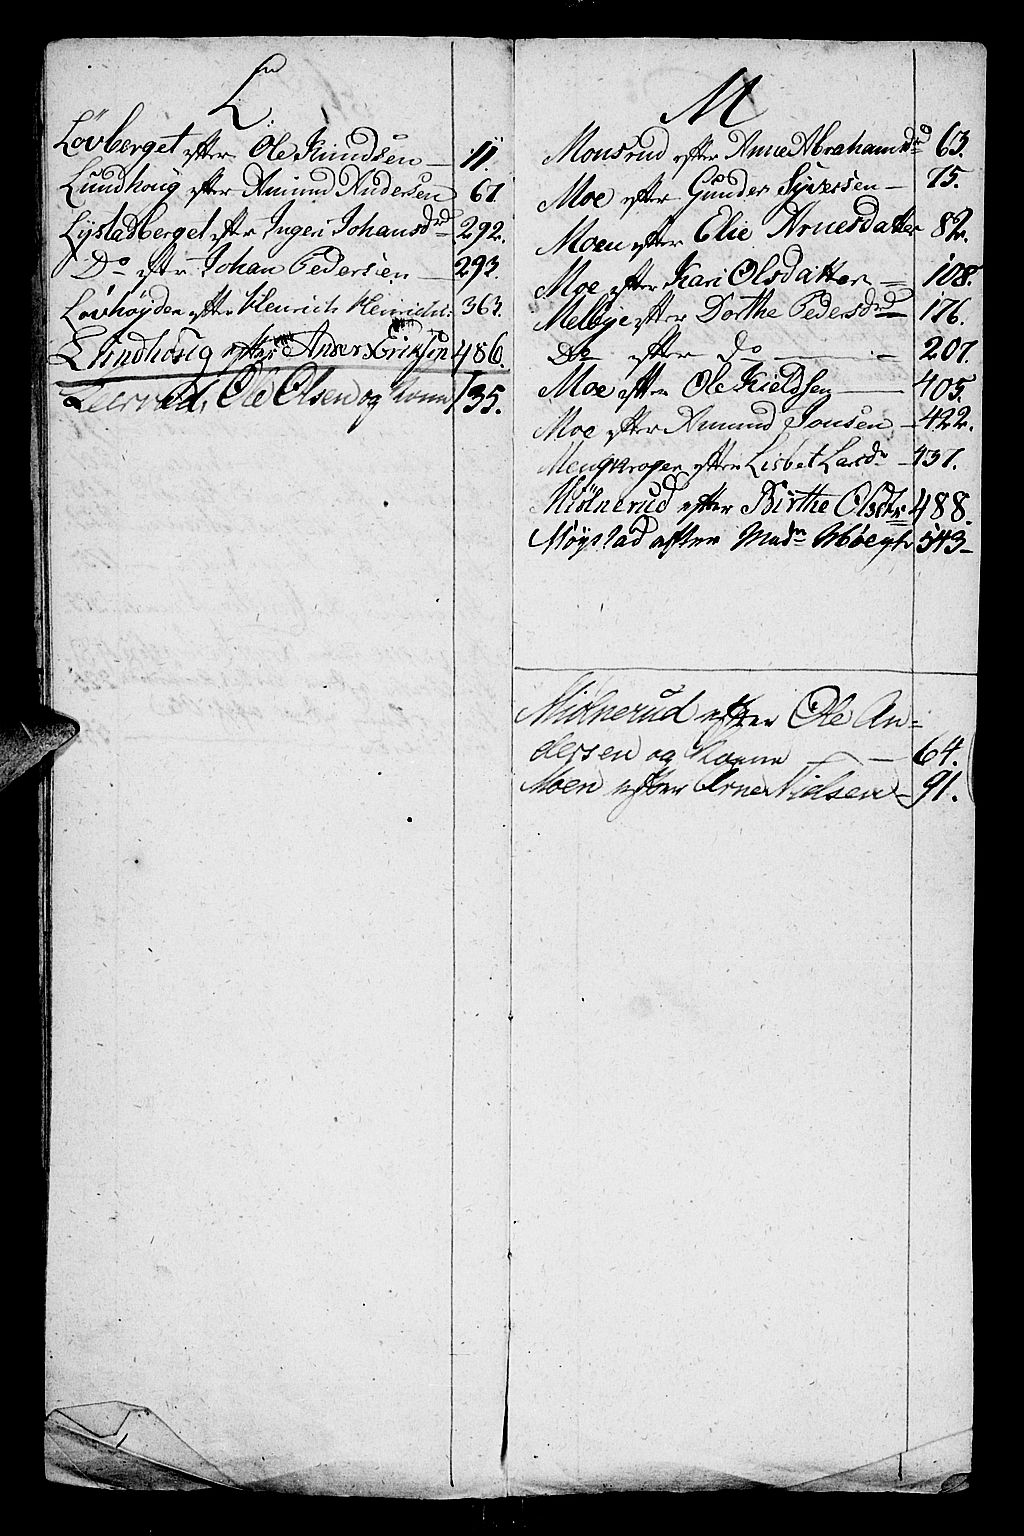 L
Lövberget efter Ole Knudsen — 11.
Lundhoug efter Amund Andersen 67
Lystadberget eftr Ingeri Johansdr 292.
Do eftr Johan Pedersen — 293.
Lövhøyden efter Henrich Henrichs: 363.
Lundhoug efter Anders Eriksen 486.
Ole Olsen og kone 135.
M
Monsrud efter Anne Abrahamsdr 63.
Moe efter Gunder Syversen — 75.
Moen efter Elie Arnesdatter 82.
Moe efter Kari Olsdatter — 108.
Melbye efter Dorthe Pedersdr — 176.
Do efter Do — 207.
Moe efter Ole Kieldsen — 405.
Moe efter Amund Jonsen — 422.
Mengkrogen efter Lisbet Larsdr — 437.
Miölnerud efter Birthe Olsdtr 488.
Møystad efter Madm 543 —
Miölnerud efter Ole An=
dersen og Kone — 64.
Moen efter Arne Nielsen — 91.